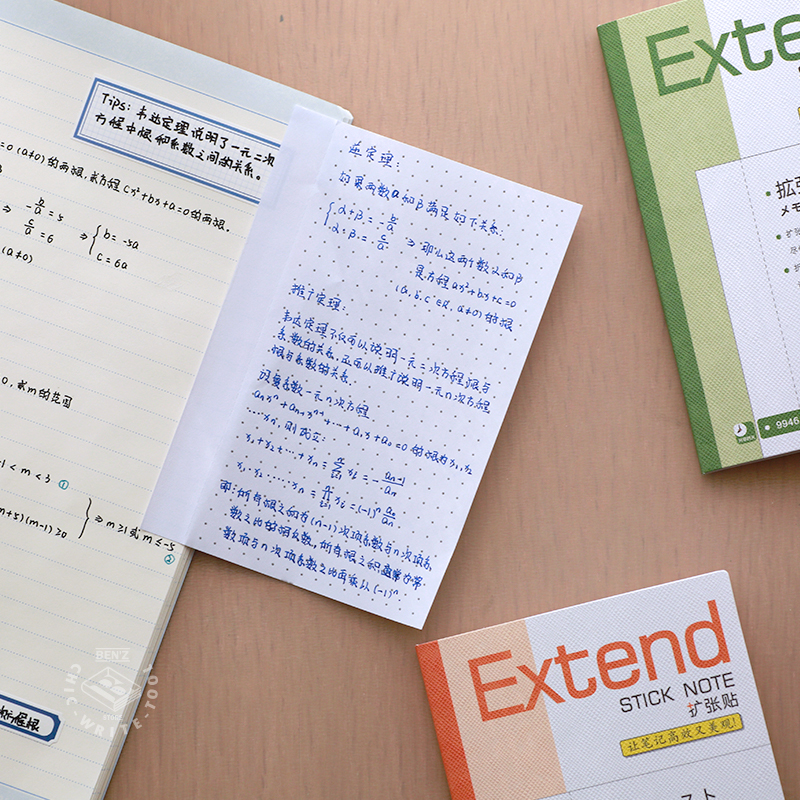 Tips: 韦达定理说明了一元二次
方程中根和系数之间的关系。
=0 (a≠0) 的两根,求方程 cx²+bx+a=0 的两根。
⇒ -b/a = 5
c/a = 6
⇒ { b = -5a
c = 6a
(a≠0)
0, 求m的范围
-1 < m < 3 ①
m+5)(m-1)≥0 } ⇒ m≥1 或 m≤-5
②
逆定理:
如果两数α和β满足如下关系:
{ α+β = -b/a
α·β = c/a
⇒ 那么这两个数α和β
是方程 ax²+bx+c=0
(a,b,c∈R, a≠0) 的根
推广定理:
韦达定理不仅可以说明一元二次方程根与
系数的关系,还可以推广说明一元n次方程
根与系数的关系。
设复系数一元n次方程
aₙxⁿ+aₙ₋₁xⁿ⁻¹+…+a₁x+a₀=0 的根为 x₁,x₂
……xₙ, 则成立:
x₁+x₂+…+xₙ = Σxᵢ = -aₙ₋₁/aₙ
x₁·x₂……xₙ = = (-1)ⁿ a₀/aₙ
所有根之和有(n-1)次项系数与n次项系
数之比的相反数,所有根之积
数项与n次项系数之比再乘以(-1)ⁿ。
Exte
扩张
メモ
9946
Extend
STICK NOTE
扩张贴
让笔记高效又美观!
BEN'Z
CHIC-WRITE-TOOL